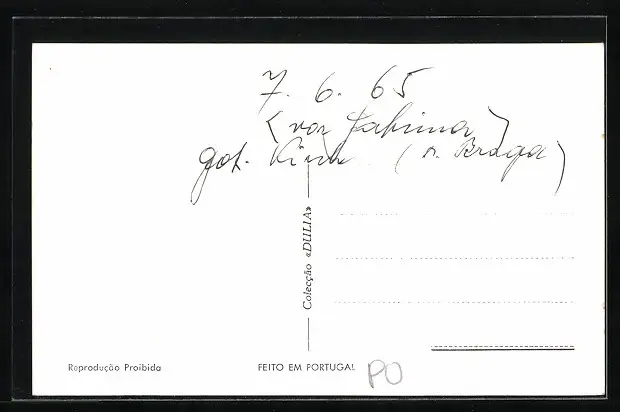 7. 6. 65
(von Fatima)
got. Kirche (n. Braga)
Colecção «DULIA»
Reprodução Proibida
FEITO EM PORTUGAL
PO